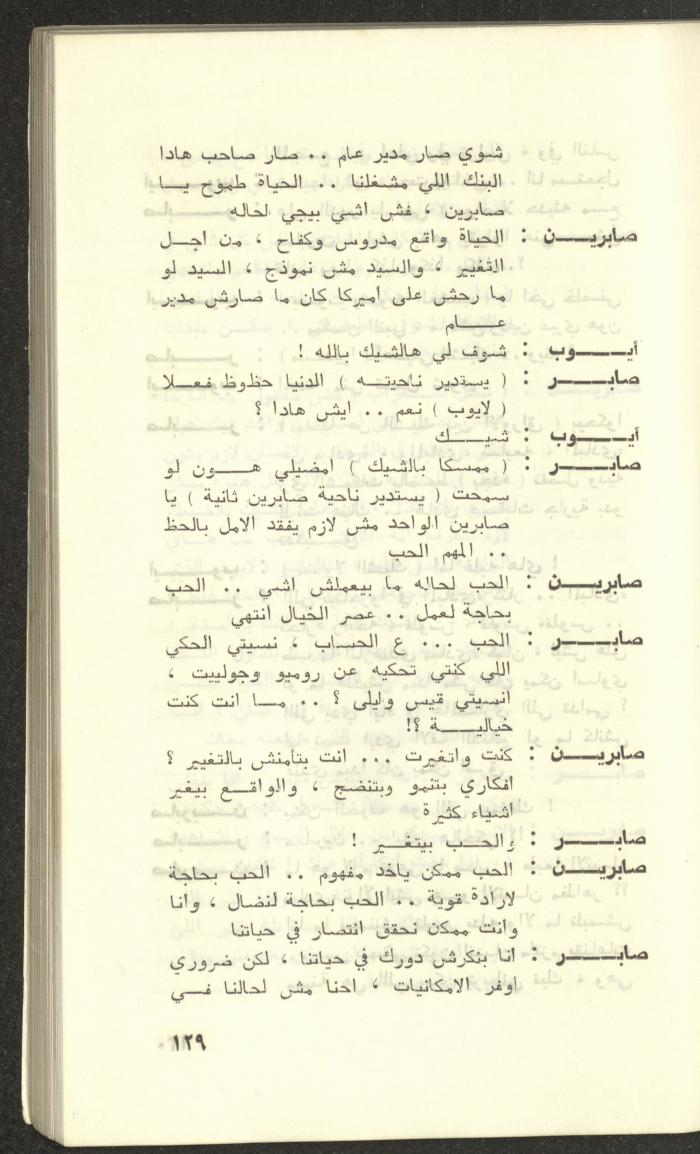 شوي صار مدير عام .. صار صاحب هادا
البنك اللي مشغلنا .. الحياة طموح يــا
صابرين ، فش اشي بيجي لحاله
صابريــــن : الحياة واقع مدروس وكفاح ، من اجــل
التغيير ، والسيد مش نموذج ، السيد لو
ما رحش على أميركا كان ما صارش مدير
عــــام
أيــــوب : شوف لي هالشيك بالله !
صابــــر : ( يستدير ناحيتــه ) الدنيا حظوظ فعــلا
( لايوب ) نعم .. ايش هادا ؟
أيــــوب : شيــــك
صابــــر : ( ممسكا بالشيك ) امضيلي هــــون لو
سمحت ( يستدير ناحية صابرين ثانية ) يا
صابرين الواحد مش لازم يفقد الامل بالحظ
.. المهم الحب
صابريــــن : الحب لحاله ما بيعملش اشي .. الحب
بحاجة لعمل .. عصر الخيال انتهي
صابــــر : الحب ... ع الحساب ، نسيتي الحكي
اللي كنتي تحكيه عن روميو وجولييت ،
انسيتي قيس وليلى ؟ .. مــا انت كنت
خياليــــة ؟!
صابريــــن : كنت واتغيرت ... انت بتأمنش بالتغيير ؟
افكاري بتنمو وبتنضج ، والواقــع بيغير
اشياء كثيرة
صابــــر : والحــب بيتغــير !
صابريــــن : الحب ممكن ياخد مفهوم .. الحب بحاجة
لارادة قوية .. الحب بحاجة لنضال ، وانا
وانت ممكن نحقق انتصار في حياتنا
صابــــر : انا بنكرش دورك في حياتنا ، لكن ضروري
اوفر الامكانيات ، احنا مش لحالنا فــي
١٢٩